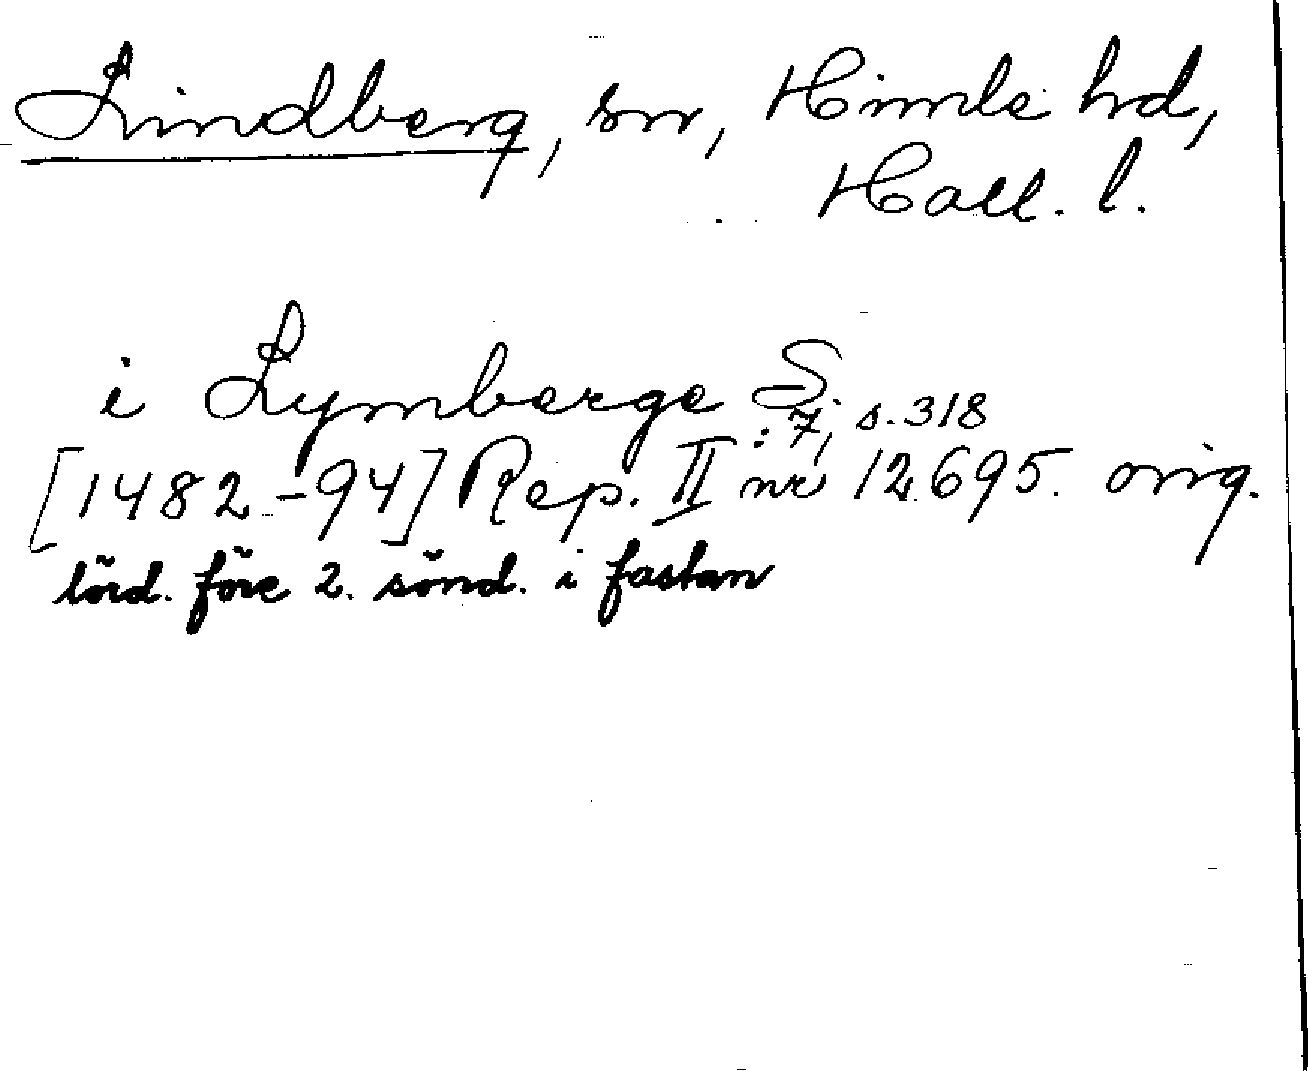 Lindberg, sn, Himle hd,
Hall. l.
i Lymberge S.
[1482-94] Rep. II :7, s. 318 nr 12695. orig.
lörd. före 2. sönd. i fastan